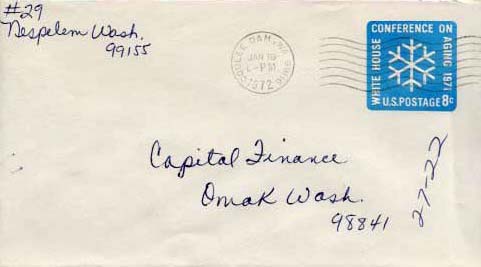 #29
Nespelem Wash.
99155
COULEE DAM, WA
JAN 19
PM
1972
WHITE HOUSE CONFERENCE ON AGING 1971
U.S. POSTAGE 8c
Capital Finance
Omak Wash.
98841
27-22